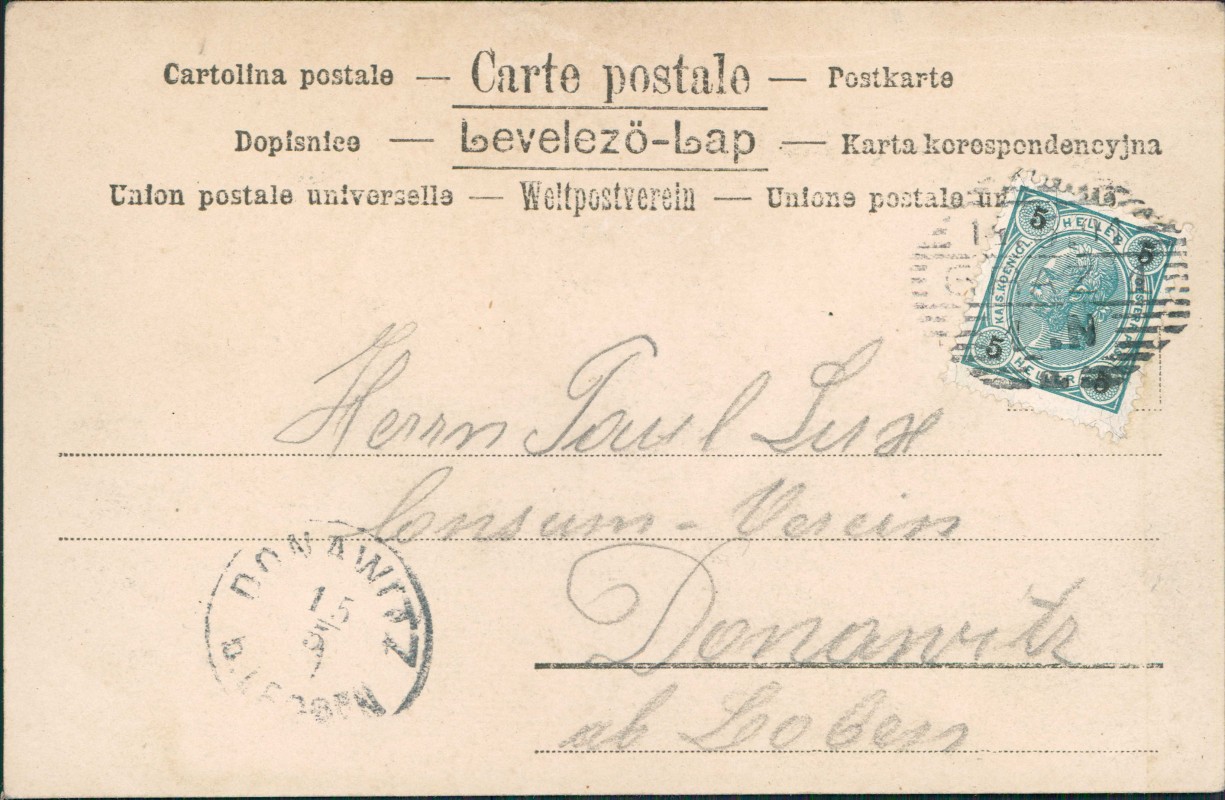 Cartolina postale — Carte postale — Postkarte
Dopisnice — Levelezö-Lap — Karta korespondencyjna
Union postale universelle — Weltpostverein — Unione postale
5 HELLER 5
KAIS. KOENIGL.
5 HELLER 5
Herrn Paul Lux
Consum-Verein
Donawitz
ab Loben
DONAWITZ
15